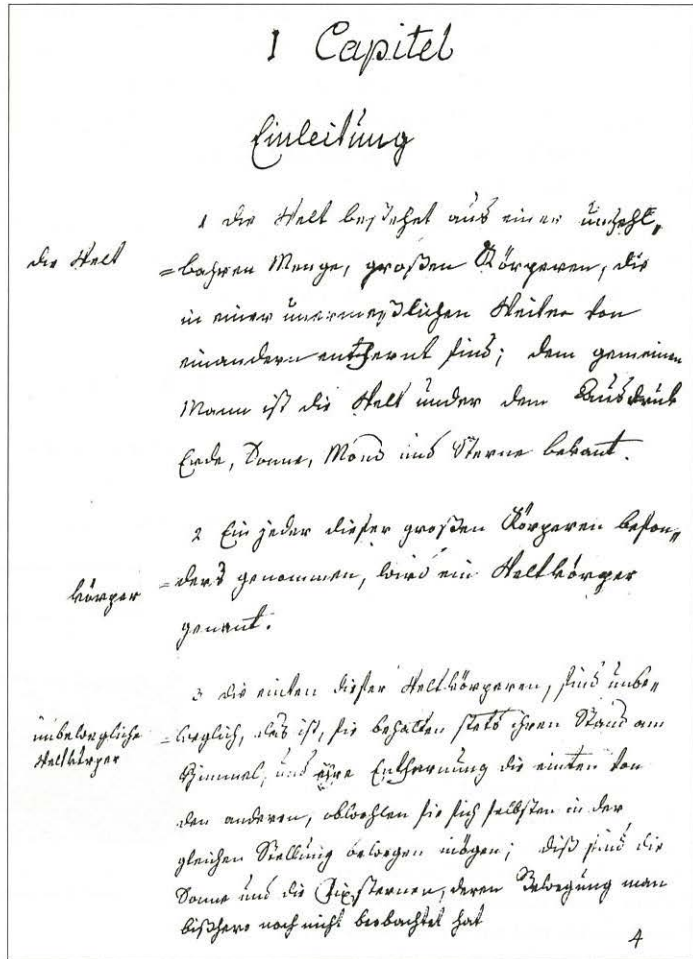 1 Capitel
Einleitung
1 die Welt bestehet aus einer unzehl„
die Welt
=bahren Menge, großen Körperen, die
in einer unermeßlichen Weiten von
einandern entfernt sind; dem gemeinen
Mann ist die Welt under dem Ausdruk
Erde, Sonne, Mond und Sterne bekant.
2 Ein jeder dieser großen Körperen beson„
körper
=ders genommen, wird ein Weltkörper
genant.
3 die einten dieser Weltkörperen, sind unbe„
unbewegliche
Weltkörper
=weglich, das ist, sie behalten stets ihren Stand am
Himmel, und ihre Entfernung die einten von
den anderen, obwohlen sie sich selbsten in der
gleichen Stellung bewegen mögen; diß sind die
Sonne und die Fixsternen, deren Bewegung man
bißhero noch nicht beobachtet hat
4